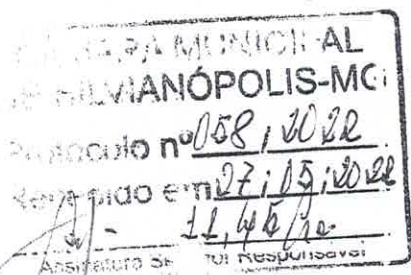 CÂMARA MUNICIPAL
DE SILVIANÓPOLIS-MG
Protocolo nº 058 / 2022
Recebido em 27 / 05 / 2022
11,45 hs
Assinatura Se Responsável